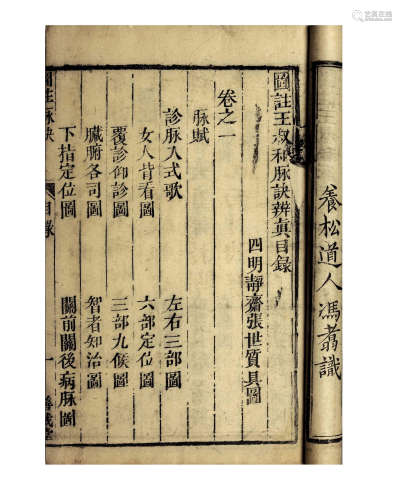 養松道人馮翥識
圖註王叔和脉訣辨真目録
四明靜齋張世賢具圖
卷之一
脉賦
診脉入式歌
左右三部圖
女人背看圖
六部定位圖
覆診仰診圖
三部九候圖
臟腑各司圖
智者知治圖
下指定位圖
關前關後病脉圖
圖註脉訣
目録
一